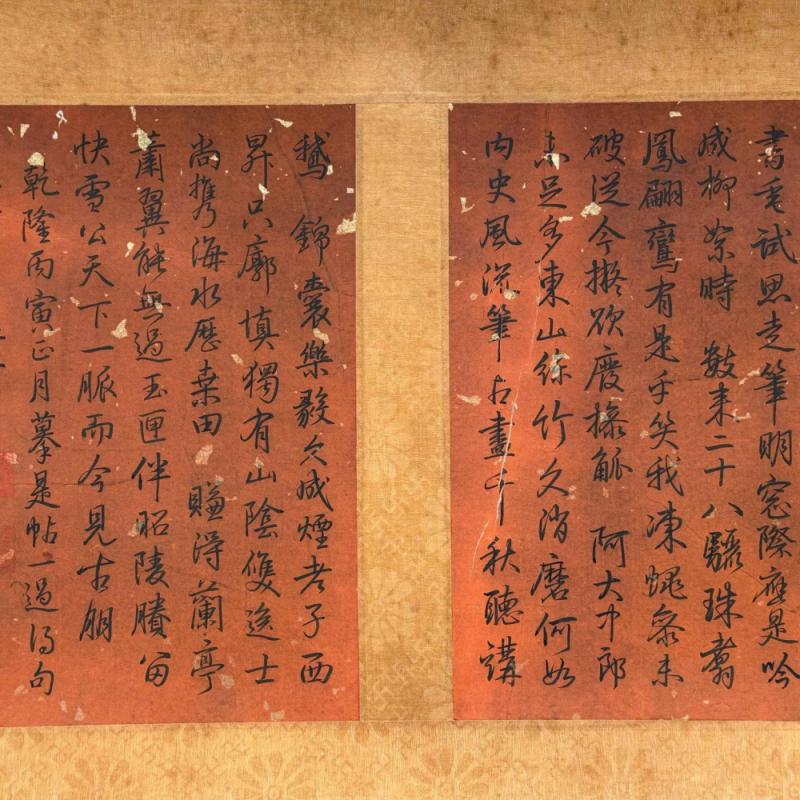 試思走筆明窓際應是吟
成柳絮時 數來二十八驪珠翥
鳳翩鸞有是乎笑我凍蠅參未
破從今擬欲廢操觚 阿大中郎
未足多東山絲竹久消磨何如
内史風流筆占盡千秋聽講
鵝 錦囊樂毅久成煙老子西
昇只廓填獨有山陰雙逸士
尚携海水歷桑田 賺得蘭亭
蕭翼能無過玉匣伴昭陵賸留
快雪公天下一脈而今見古朋
乾隆丙寅正月摹是帖一過得句